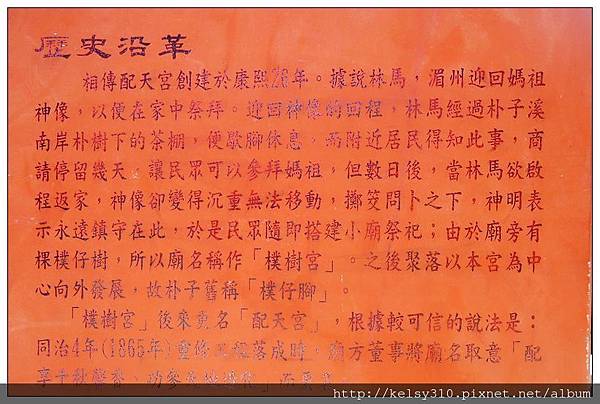 歷史沿革
相傳配天宮創建於康熙26年。據說林馬，湄州迎回媽祖
神像，以便在家中祭拜。迎回神像的回程，林馬經過朴子溪
南岸朴樹下的茶棚，便歇腳休息，而附近居民得知此事，商
請停留幾天，讓民眾可以參拜媽祖，但數日後，當林馬欲啟
程返家，神像卻變得沉重無法移動，擲筊問卜之下，神明表
示永遠鎮守在此，於是民眾隨即搭建小廟祭祀；由於廟旁有
棵樸仔樹，所以廟名稱作「樸樹宮」。之後聚落以本宮為中
心向外發展，故朴子舊稱「樸仔腳」。
「樸樹宮」後來更名「配天宮」，根據較可信的說法是：
同治4年(1865年)重修工程落成時，廟方董事將廟名取意「配
享千秋馨香，功參
http://kelsy310.pixnet.net/album